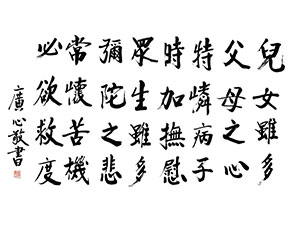 兒女雖多
父母之心
特憐病子
時加撫慰
眾生雖多
彌陀之悲
常懷苦機
必欲救度
廣心敬書